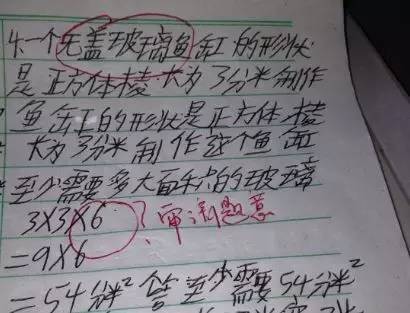 4.一个无盖玻璃鱼缸的形状
是正方体棱长为3分米制作
鱼缸的形状是正方体棱
长为3分米制作这个鱼缸
至少需要多大面积的玻璃
3X3X6 ?审清题意
=9X6
=54分米² 答至少需要54分米²